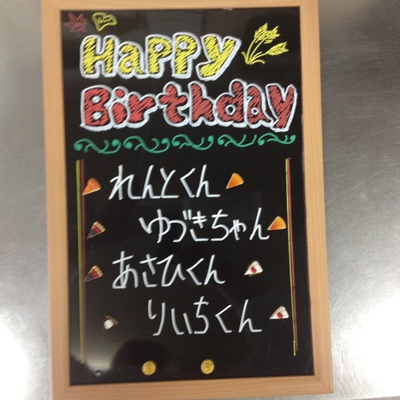 Happy
Birthday
れんとくん
ゆづきちゃん
あさひくん
りいちくん